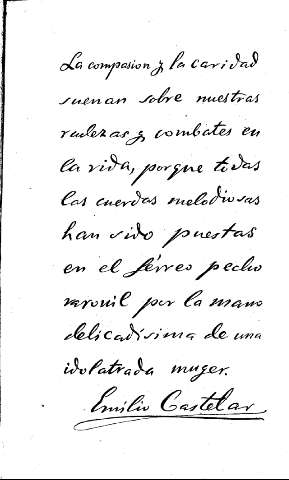 La compasion y la caridad
suenan sobre nuestras
rudezas y combates en
la vida, porque todas
las cuerdas melodiosas
han sido puestas
en el férreo pecho
varonil por la mano
delicadísima de una
idolatrada muger.
Emilio Castelar